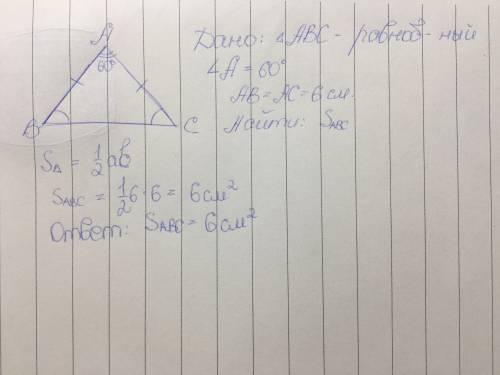 A
60°
B
C
Дано: △ABC - равноб-ный
∠A = 60°
AB = AC = 6 см.
Найти: SABC
S△ = 1/2 ab
SABC = 1/2 6·6 = 6 см²
Ответ: SABC = 6 см²